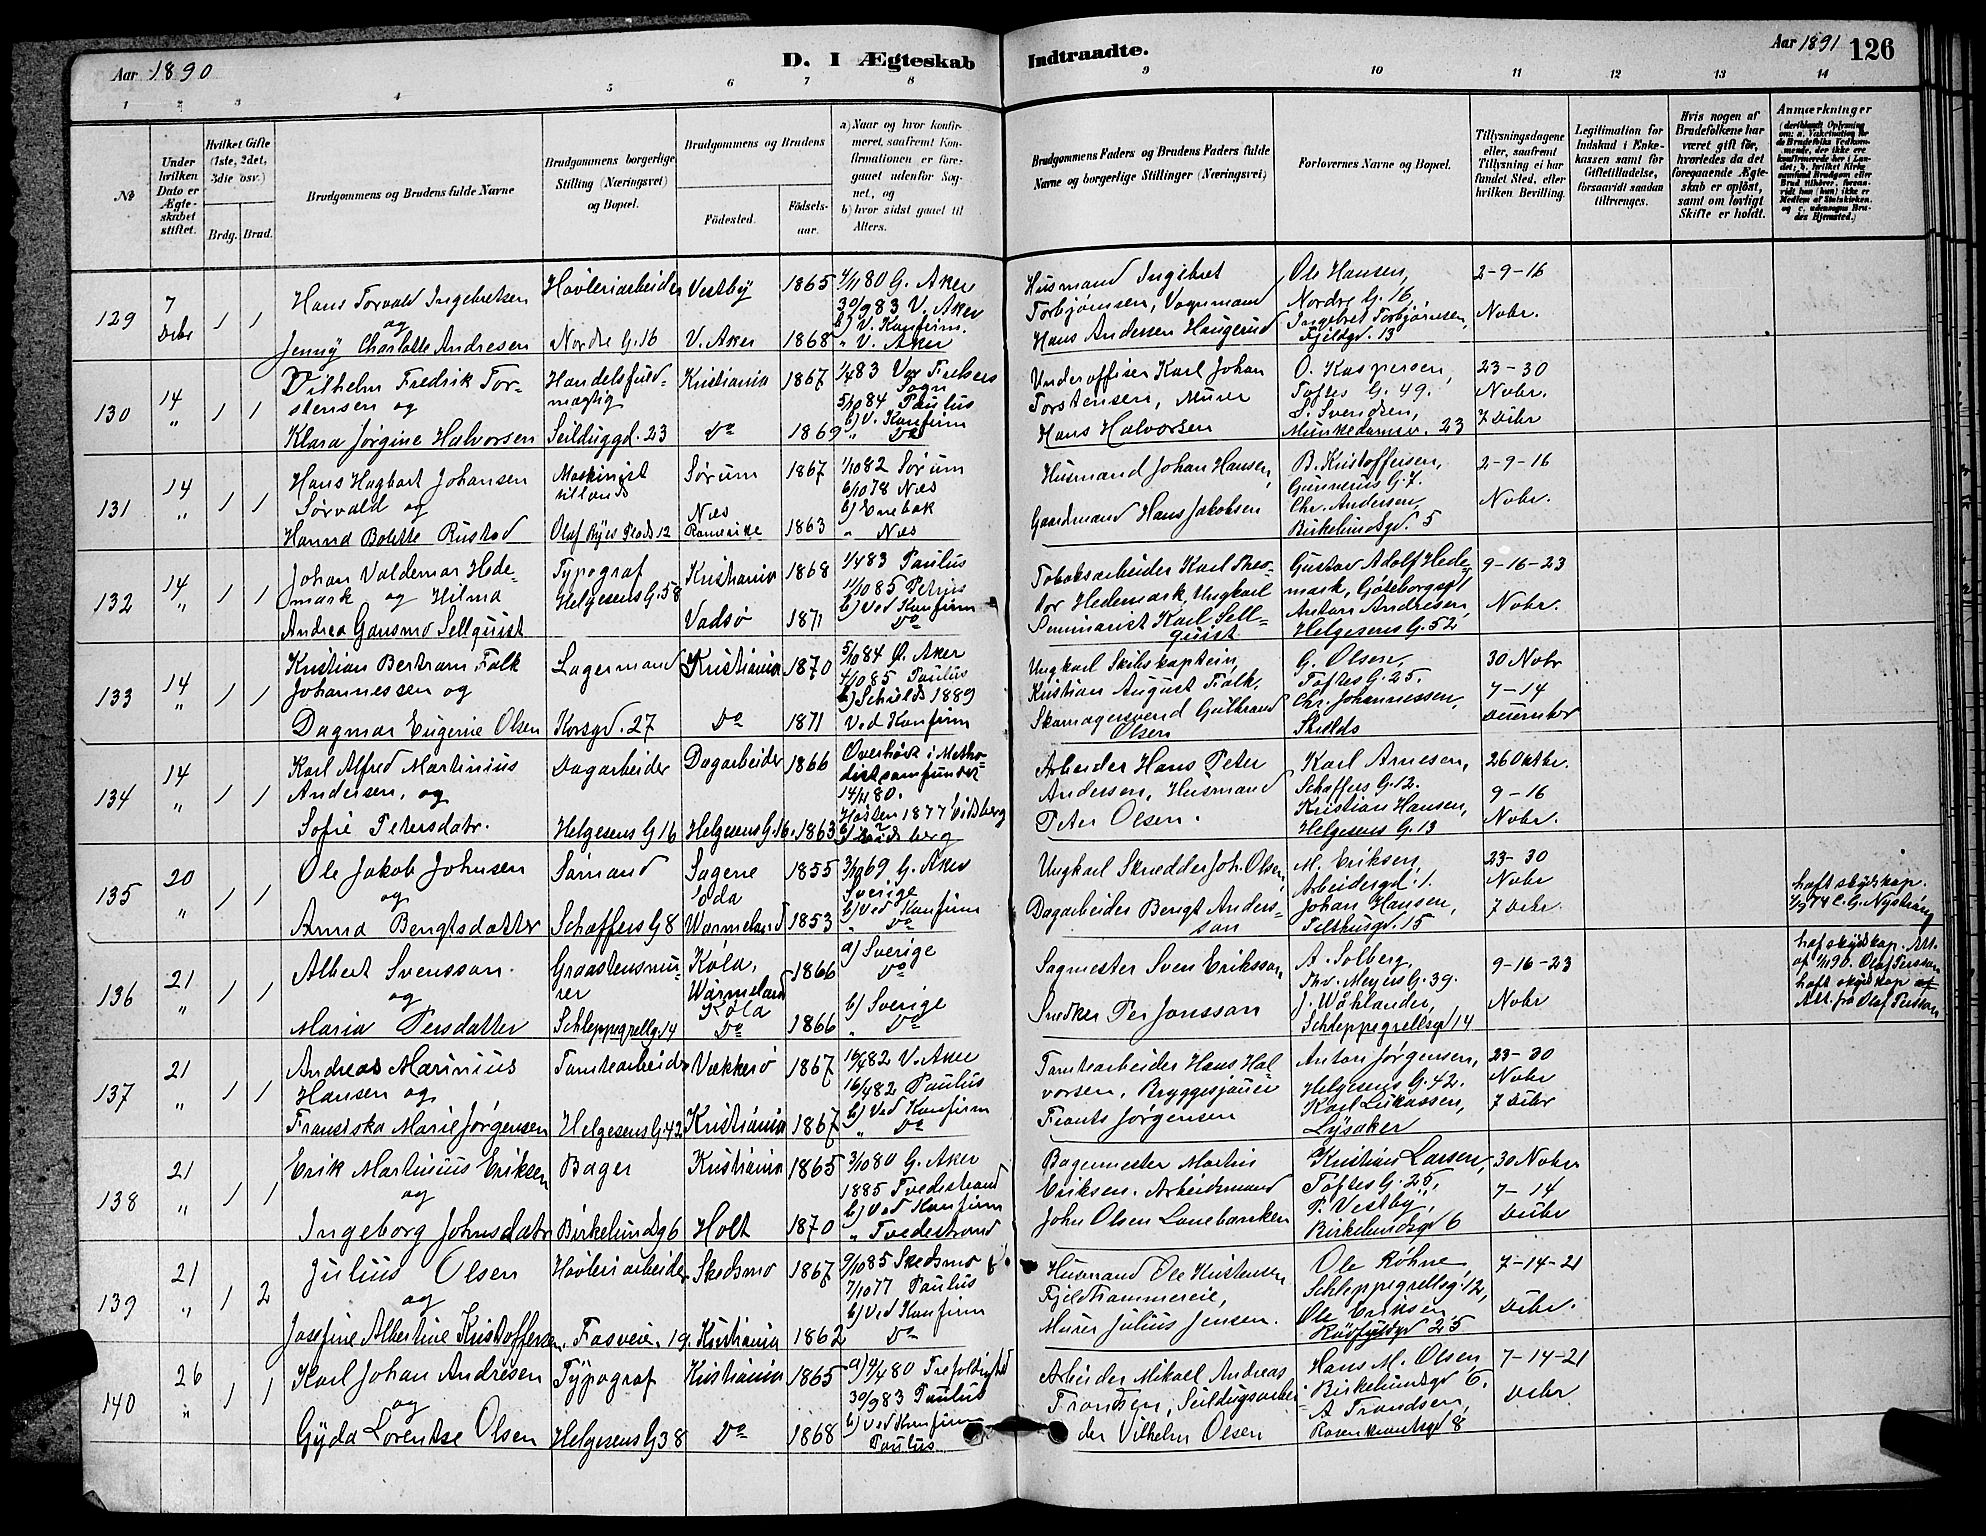 Aar 1890
D. I Ægteskab
Indtraadte.
Aar 1891
126
1 2 3 4 5 6 7 8 9 10 11 12 13 14
No
Under hvilken Dato er Ægteskabet stiftet.
Hvilket Gifte (1ste, 2det, 3die osv.)
Brdg. Brud.
Brudgommens og Brudens fulde Navne
Brudgommens borgerlige Stilling (Næringsvei) og Bopæl.
Brudgommens og Brudens
Fødested.
Fødselsaar.
a) Naar og hvor konfirmeret, saafremt Konfirmationen er foregaaet udenfor Sognet, og
b) hvor sidst gaaet til Alters.
Brudgommens Faders og Brudens Faders fulde Navne og borgerlige Stillinger (Næringsvei)
Forlovernes Navne og Bopæl.
Tillysningsdagene eller, saafremt Tillysning ei har fundet Sted, efter hvilken Bevilling.
Legitimation for Indskud i Enkekassen samt for Giftetilladelse, forsaavidt saadan tiltrænges.
Hvis nogen af Brudefolkene har været gift før, hvorledes da det foregaaende Ægteskab er opløst, samt om lovligt Skifte er holdt.
Anmærkninger
129
7 Debr
1 1
Hans Torvald Ingebretsen
og
Jenny Charlotte Andresen
Høvleriarbeider
Nordre G. 16
Vestby 1865
V. Aker 1868
4/1 80 G. Aker
30/9 83 V. Aker
b) V. Konfirm.
" V. Aker
Husmand Ingebret
Torbjørnsen, Vognmand
Hans Andersen Haugerud
Ole Hansen,
Nordre G. 16,
Ingebret Torbjørnsen,
Fjeldgd. 13
2-9-16
Nobr.
130
14 "
1 1
Vilhelm Fredrik Tor-
stensen og
Klara Jørgine Halvorsen
Handelsfuld-
mægtig
Seilduggd. 23
Kristiania 1867
do 1869
1/4 83 Vor Frelsers
Sogn
5/10 84 Paulus
b) V. Konfirm
" do
Underoffiser Karl Johan
Torstensen, Murer
Hans Halvorsen
O. Kaspersen,
Toftes G. 49.
S. Svendsen,
Munkedamsv. 23
23-30
Nobr.
7 Debr
131
14 "
1 1
Hans Hagbart Johansen
Sørvald og
Hanna Bolette Rustad
Olaf Ryes Plads 12
Sørum 1867
Næs
Romerike 1863
1/10 82 Sørum
6/10 78 Næs
b) Enebak
" Næs
Husmand Johan Hansen,
Gaardmand Hans Jakobsen
B. Kristoffersen,
Gunnerus G. 7.
Chr. Andersen,
Birkelundsgd. 5
2-9-16
Nobr.
132
14 "
1 1
Johan Valdemar Hede-
mark og Hilma
Andrea Gansmo Sellquist
Typograf
Helgesens G. 58
Kristiania 1868
Vadsø 1871
1/4 83 Paulus
11/10 85 Petrus
b) Ved Konfirm
do
Tobaksarbeider Karl Theo-
dor Hedemark, Ungkarl
Seminarist Karl Sell-
quist
Gustav Adolf Hede-
mark, Gøteborgsgt
Anton Andresen,
Helgesens G. 52
9-16-23
Nobr.
133
14 "
1 1
Kristian Bertram Falk
Johannessen og
Dagmar Eugenie Olsen
Lagermand
Korsgd. 27
Kristiania 1870
do 1871
5/10 84 Ø. Aker
4/10 85 Paulus
b) Schilds 1889
Ved Konfirm
Ungkarl Skibskaptein,
Kristian August Falk,
Skomagersvend Gulbrand
Olsen
G. Olsen,
Toftes G. 25.
Chr. Johannessen,
Skilds
30 Nobr
7-14
December
134
14 "
1 1
Karl Alfred Martinius
Andersen, og
Sofie Petersdatr.
Dagarbeider
Helgesens G 16
Dagarbeider 1866
Helgesens G. 16. 1863
Overhørt i Metho-
distsamfundet
14/11 80.
Høsten 1877 Eidsberg
Arbeider Hans Peter
Andersen, Husmand
Peter Olsen.
Karl Arnesen,
Schaffers G. 12.
Kristian Hansen,
Helgesens G. 13
26 Oktbr.
9-16
Nobr.
135
20 "
1 1
Ole Jakob Johnsen
og
Anna Bengtsdatter
Sømand
Schaffers G 8
Sagene 1855
Wærmeland 1853
3/10 69 G. Aker
Sverige
b) Ved Konfirm
" do
Ungkarl Skredder Joh. Olsen,
Dagarbeider Bengt Anders-
son
M. Eriksen,
Arbeidergd. 1.
Johan Hansen,
Telthusgd. 15
23-30
Nobr
7 Debr.
haft skydskap.
C. G. Nystrøm
136
21 "
1 1
Albert Svensson.
og
Maria Persdatter
Graastensmu-
rer
Schleppegrellg. 14
Køla, 1866
Wærmeland
Køla
do 1866
a) Sverige
do
b) Sverige
" do
Sagmester Sven Eriksson
Snedker Per Jonsson
A. Solberg,
Thv. Meyers G. 39.
J. Wåhlander,
Schleppegrellsgd 14
9-16-23
Nobr
haft skydskap. Att.
Olaf Persson
haft skydskap
Att. fra Olaf Persson
137
21 "
1 1
Andreas Marinius
Hansen og
Franciska Marie Jørgensen
Tomtearbeider
Helgesens G. 42
Vækkerø 1867
Kristiania 1867
16/4 82 V. Aker
16/4 82 Paulus
b) Ved Konfirm
" do
Tomtearbeider Hans Hal-
vorsen, Bryggesjauer
Frants Jørgensen
Anton Jørgensen,
Helgesens G. 42.
Karl Lukassen,
Lysaker
23-30
Nobr
7 Debr
138
21 "
1 1
Erik Martinius Eriksen
og
Ingeborg Johnsdatr
Bager
Birkelundg 6
Kristiania 1865
Holt 1870
3/10 80 G. Aker
1885 Tvedestrand
b) Ved Konfirm
" Tvedestrand
Bagermester Martin
Eriksen. Arbeidsmand
John Olsen Lanebanken
Kristian Larsen,
Toftes G. 25,
P. Vestby,
Birkelundsgd 6
30 Nobr
7-14
Debr
139
21 "
1 2
Julius Olsen
og
Josefine Albertine Kristoffersen
Høvleriarbeider
Fosveien 19
Skedsmo 1867
Kristiania 1862
9/10 85 Skedsmo
7/10 77 Paulus
b) Ved Konfirm
do
Husmand Ole Kristensen
Fjeldhammereie,
Murer Julius Jensen.
Ole Røhne,
Schleppegrellsg. 12,
Ole Eriksen
Rødfyldgd 25
7-14-21
Debr.
140
26 "
1 1
Karl Johan Andresen
og
Gyda Lorentze Olsen
Typograf
Helgesens G 38
Kristiania 1865
do 1868
a) 4/4 80 Trefoldighed
30/9 83 Paulus
b) Ved Konfirm
Paulus
Arbeider Mikael Andreas
Frantsen, Seildugsarbei-
der Vilhelm Olsen
Hans M. Olsen,
Birkelundsgd 6.
A Frandsen,
Rosenkrantsgd 8
7-14-21
Debr